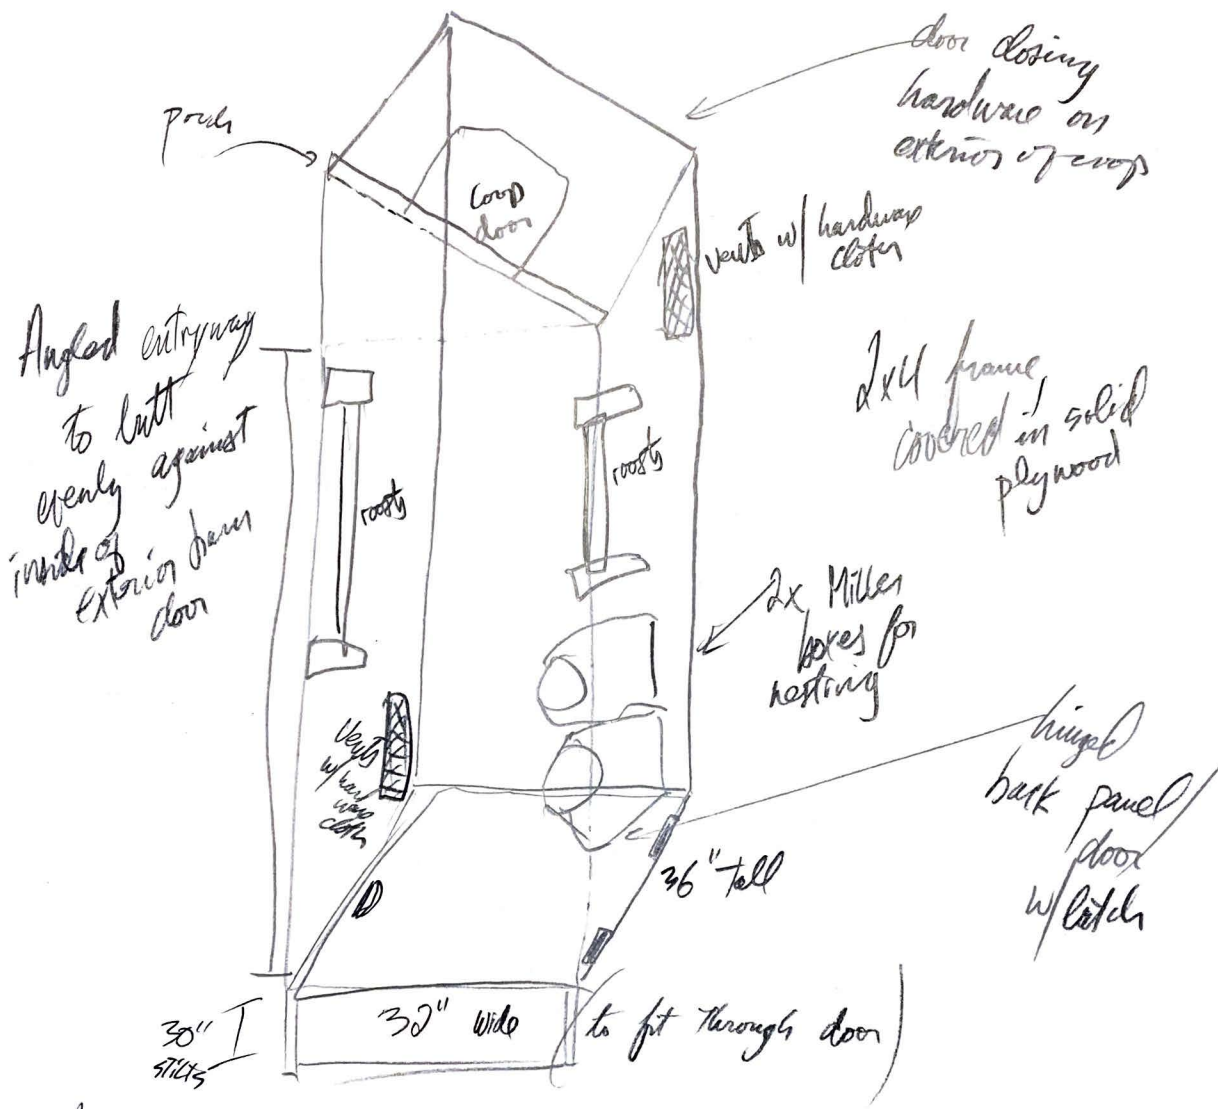 door closing
hardware on
exterior of coop
porch
coop
door
vents w/ hardware
cloth
Angled entryway
to butt
evenly against
inside of
exterior barn
door
2x4 frame,
covered in solid
plywood
roosts
roosts
2x Miller
boxes for
nesting
vents
w/ hard
ware
cloth
hinged
back panel/
door
w/ latch
36" tall
30"
stilts
32" wide
to fit through door)